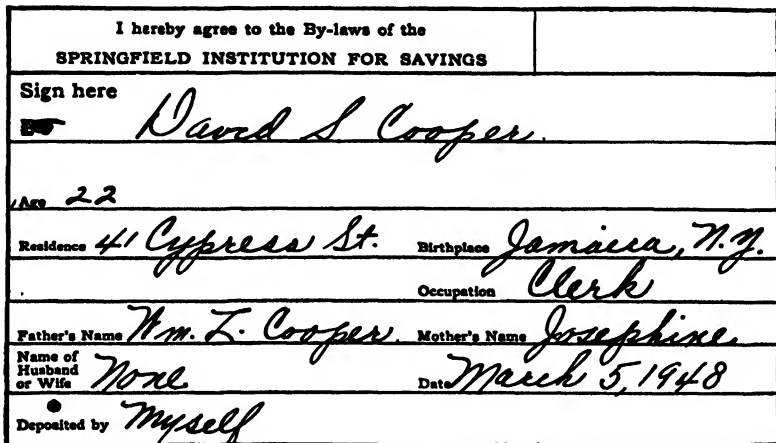 I hereby agree to the By-laws of the
SPRINGFIELD INSTITUTION FOR SAVINGS
Sign here
David S Cooper.
Age 22
Residence 41 Cypress St. Birthplace Jamaica, N.Y.
Occupation Clerk
Father's Name Wm. L. Cooper. Mother's Name Josephine
Name of
Husband
or Wife None Date March 5, 1948
Deposited by Myself